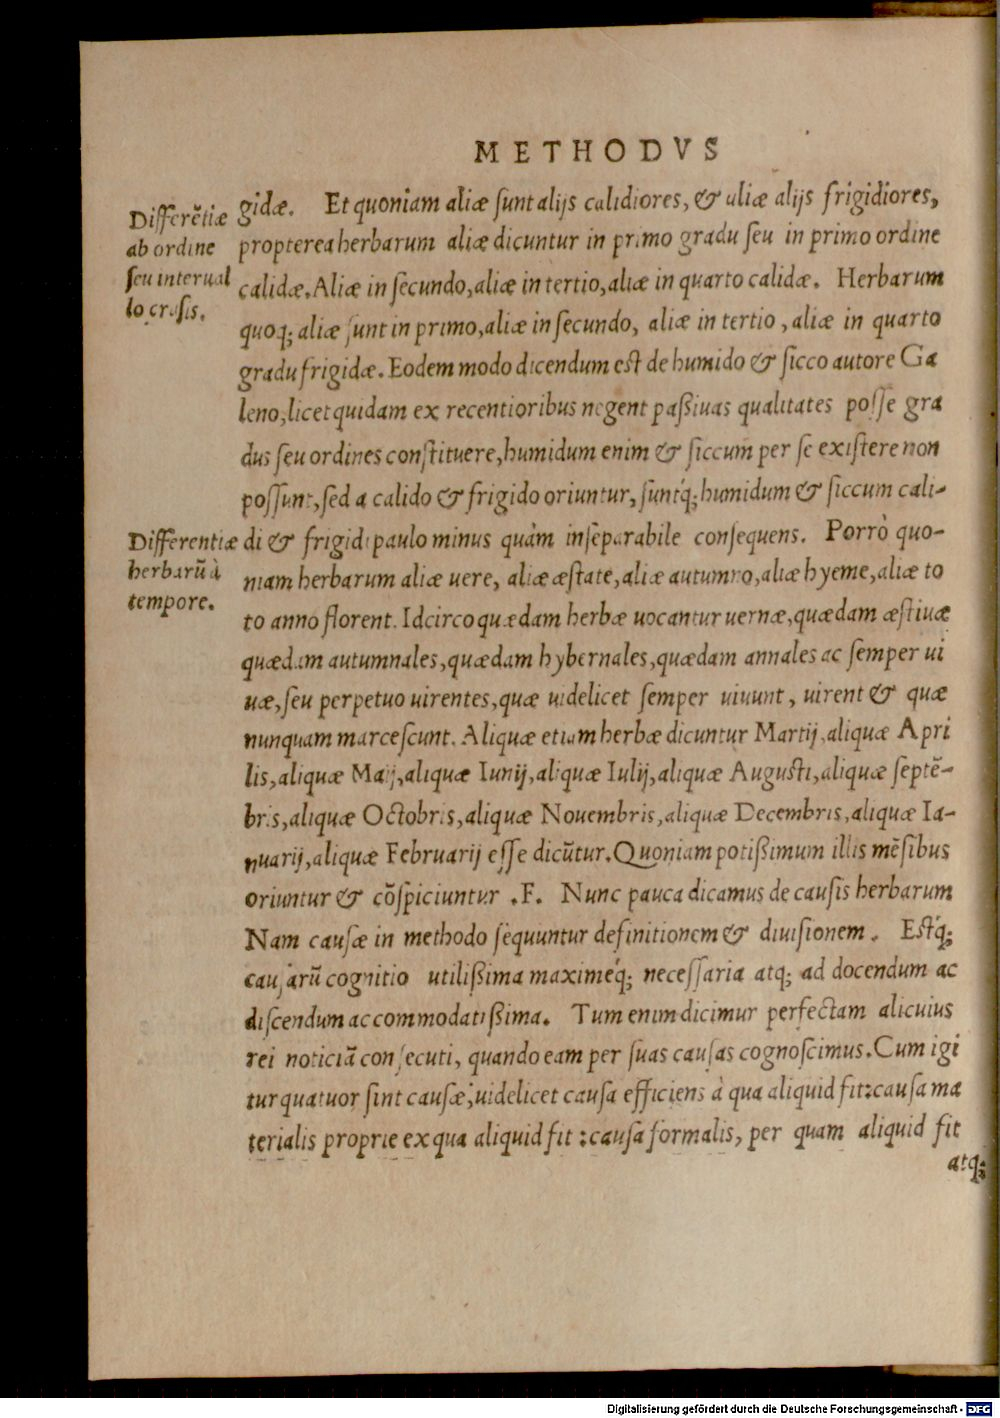 METHODVS
Differētiæ
ab ordine
ſeu interual
lo craſis.
gidæ. Et quoniam aliæ ſunt alijs calidiores, & aliæ alijs frigidiores,
propterea herbarum aliæ dicuntur in primo gradu ſeu in primo ordine
calidæ. Aliæ in ſecundo, aliæ in tertio, aliæ in quarto calidæ. Herbarum
quoq; aliæ ſunt in primo, aliæ in ſecundo, aliæ in tertio, aliæ in quarto
gradu frigidæ. Eodem modo dicendum est de humido & ſicco autore Ga
leno, licet quidam ex recentioribus negent paßiuas qualitates poſſe gra
dus ſeu ordines conſtituere, humidum enim & ſiccum per ſe exiſtere non
poſſunt, ſed a calido & frigido oriuntur, ſuntq́; humidum & ſiccum cali-
Differentiæ
herbarū à
tempore.
di & frigidi paulo minus quàm inſeparabile conſequens. Porrò quo-
niam herbarum aliæ uere, aliæ æſtate, aliæ autumno, aliæ hyeme, aliæ to
to anno florent. Idcirco quædam herbæ uocantur uernæ, quædam æſtiuæ
quædam autumnales, quædam hybernales, quædam annales ac ſemper ui
uæ, ſeu perpetuo uirentes, quæ uidelicet ſemper uiuunt, uirent & quæ
nunquam marceſcunt. Aliquæ etiam herbæ dicuntur Martij, aliquæ Apri
lis, aliquæ Maij, aliquæ Iunij, aliquæ Iulij, aliquæ Auguſti, aliquæ ſeptē-
bris, aliquæ Octobris, aliquæ Nouembris, aliquæ Decembris, aliquæ Ia-
nuarij, aliquæ Februarij eſſe dicūtur. Quoniam potißimum illis mēſibus
oriuntur & cōſpiciuntur .F. Nunc pauca dicamus de cauſis herbarum
Nam cauſæ in methodo ſequuntur definitionem & diuiſionem. Eſtq́;
cauſarū cognitio utilißima maximeq́; neceſſaria atq; ad docendum ac
diſcendum accommodatißima. Tum enim dicimur perfectam alicuius
rei noticiā conſecuti, quando eam per ſuas cauſas cognoſcimus. Cum igi
tur quatuor ſint cauſæ, uidelicet cauſa efficiens à qua aliquid fit: cauſa ma
terialis proprie ex qua aliquid fit: cauſa formalis, per quam aliquid fit
atq;
Digitalisierung gefördert durch die Deutsche Forschungsgemeinschaft - DFG